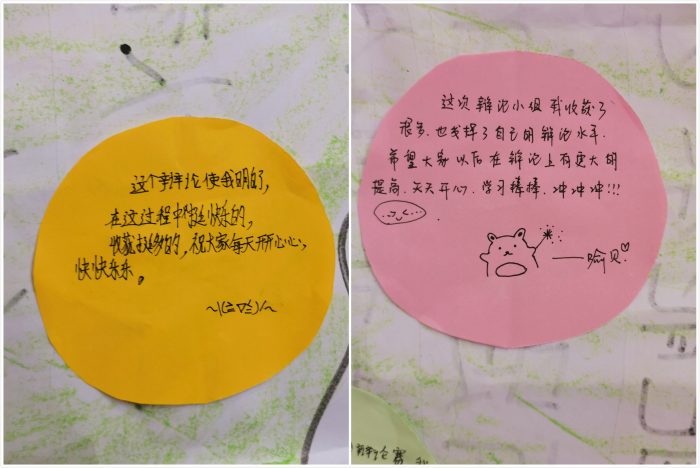 这个辩论使我明白,
在这过程中挺快乐的,
收获挺多的,祝大家每天开开心心,
快快乐乐。
这次辩论小组我收获了
很多.也发挥了自己的辩论水平.
希望大家以后在辩论上有更大的
提高.天天开心.学习棒棒.冲冲冲!!!
贝.
辩论赛